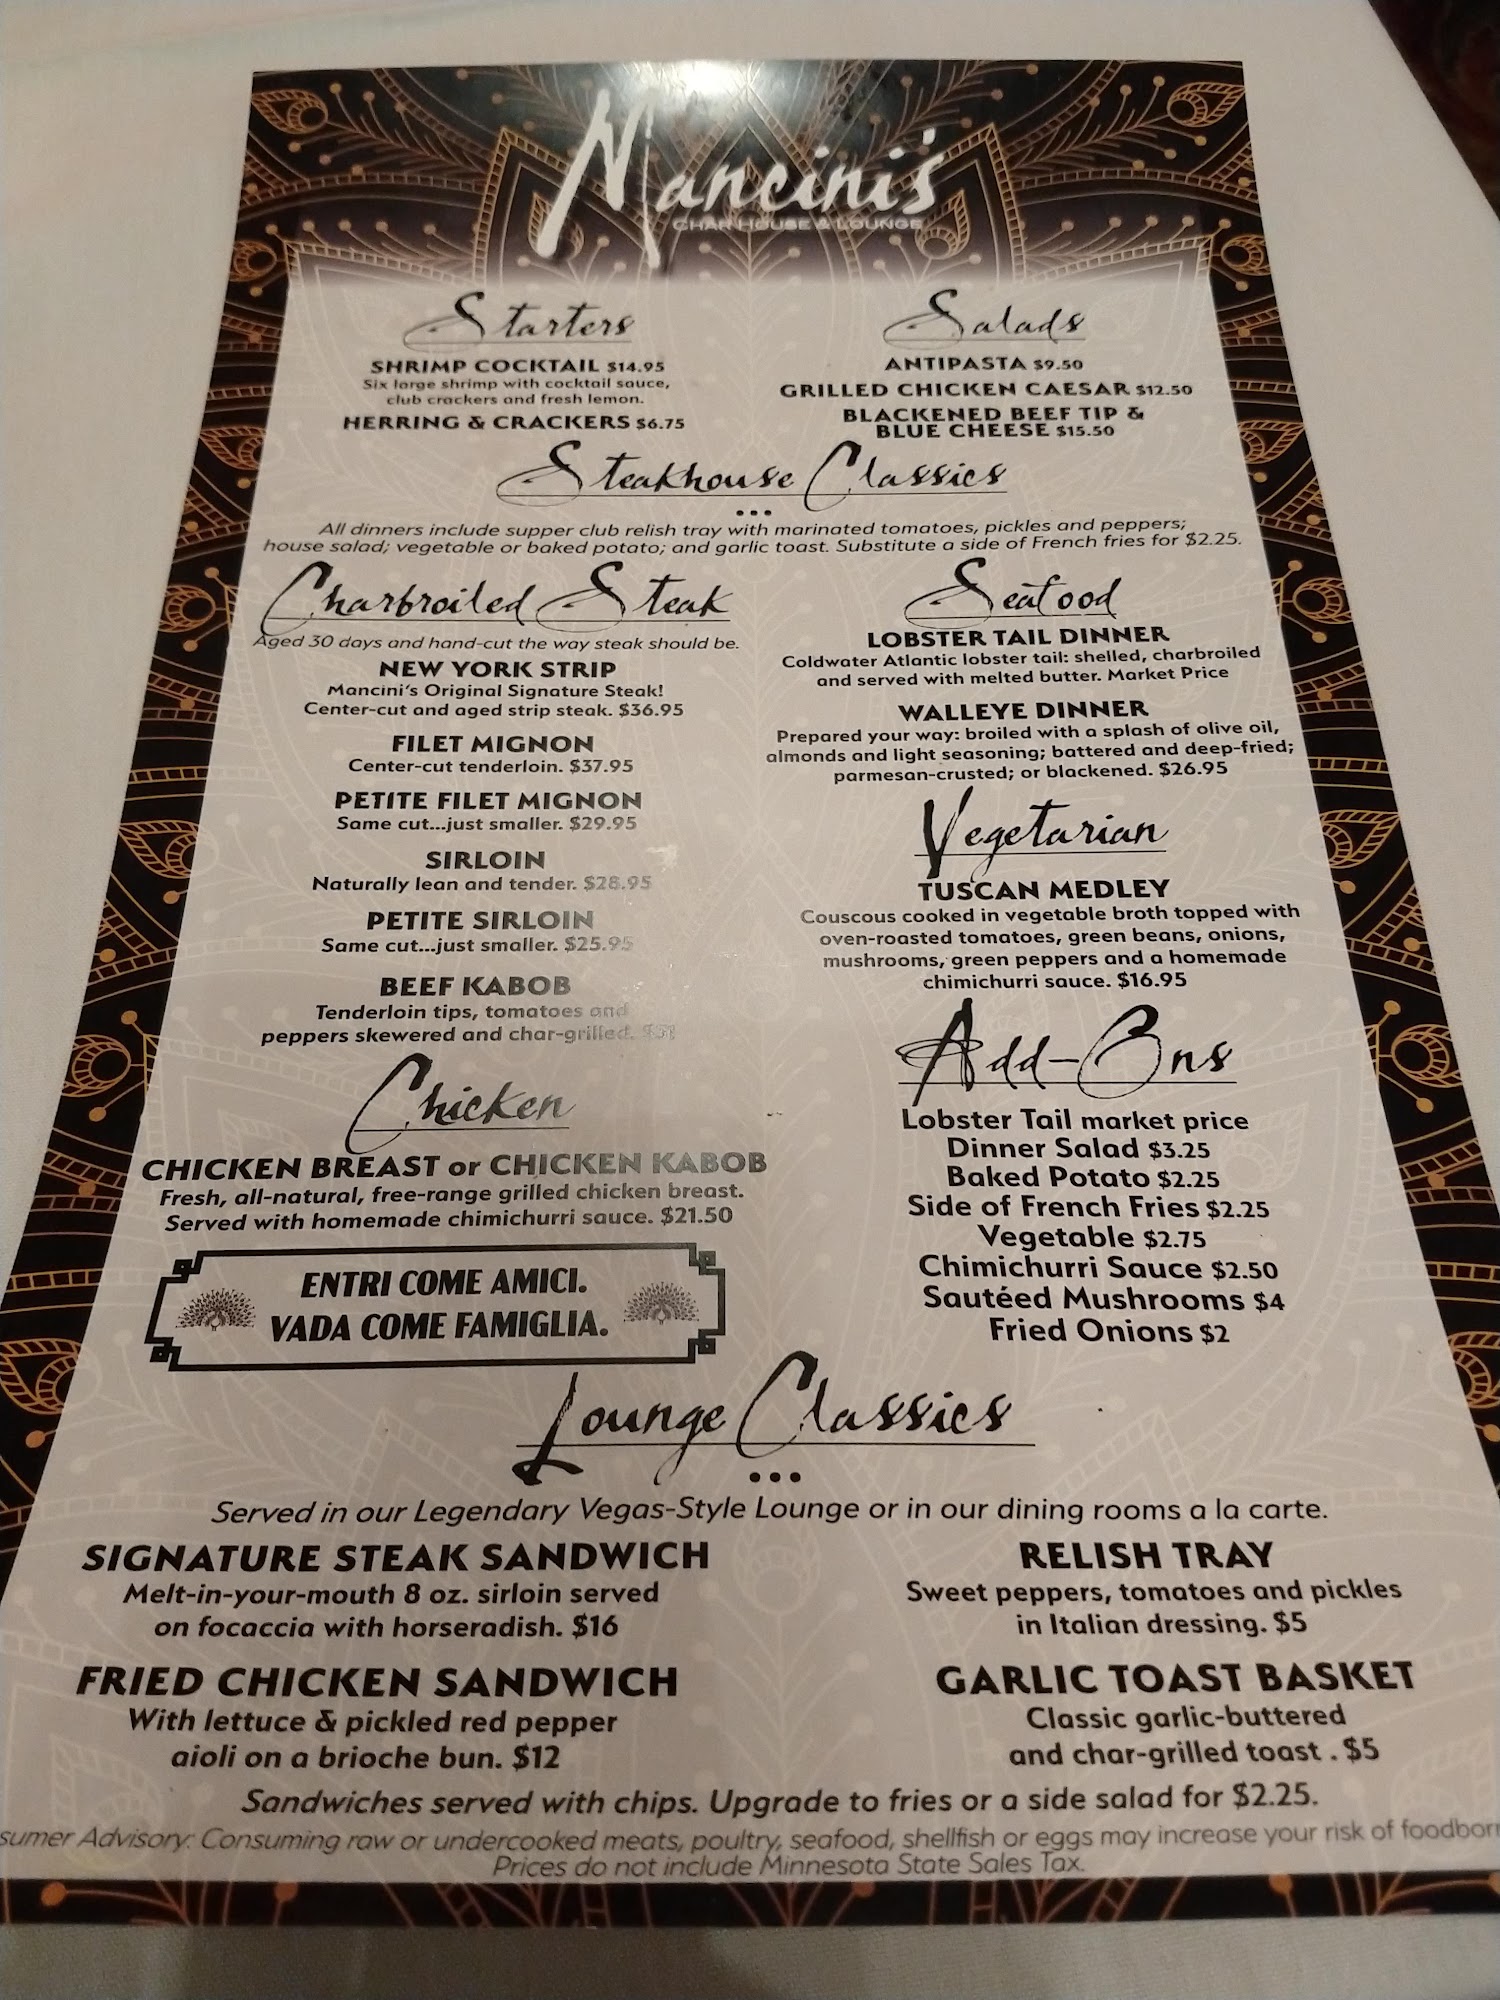 Mancini's
CHAR HOUSE & LOUNGE
Starters
SHRIMP COCKTAIL $14.95
Six large shrimp with cocktail sauce,
club crackers and fresh lemon.
HERRING & CRACKERS $6.75
Salads
ANTIPASTA $9.50
GRILLED CHICKEN CAESAR $12.50
BLACKENED BEEF TIP &
BLUE CHEESE $15.50
Steakhouse Classics
All dinners include supper club relish tray with marinated tomatoes, pickles and peppers;
house salad; vegetable or baked potato; and garlic toast. Substitute a side of French fries for $2.25.
Charbroiled Steak
Aged 30 days and hand-cut the way steak should be.
NEW YORK STRIP
Mancini's Original Signature Steak!
Center-cut and aged strip steak. $36.95
FILET MIGNON
Center-cut tenderloin. $37.95
PETITE FILET MIGNON
Same cut...just smaller. $29.95
SIRLOIN
Naturally lean and tender. $28.95
PETITE SIRLOIN
Same cut...just smaller. $25.95
BEEF KABOB
Tenderloin tips, tomatoes and
peppers skewered and char-grilled.
Chicken
CHICKEN BREAST or CHICKEN KABOB
Fresh, all-natural, free-range grilled chicken breast.
Served with homemade chimichurri sauce. $21.50
ENTRI COME AMICI.
VADA COME FAMIGLIA.
Seafood
LOBSTER TAIL DINNER
Coldwater Atlantic lobster tail: shelled, charbroiled
and served with melted butter. Market Price
WALLEYE DINNER
Prepared your way: broiled with a splash of olive oil,
almonds and light seasoning; battered and deep-fried;
parmesan-crusted; or blackened. $26.95
Vegetarian
TUSCAN MEDLEY
Couscous cooked in vegetable broth topped with
oven-roasted tomatoes, green beans, onions,
mushrooms, green peppers and a homemade
chimichurri sauce. $16.95
Add-Ons
Lobster Tail market price
Dinner Salad $3.25
Baked Potato $2.25
Side of French Fries $2.25
Vegetable $2.75
Chimichurri Sauce $2.50
Sautéed Mushrooms $4
Fried Onions $2
Lounge Classics
Served in our Legendary Vegas-Style Lounge or in our dining rooms a la carte.
SIGNATURE STEAK SANDWICH
Melt-in-your-mouth 8 oz. sirloin served
on focaccia with horseradish. $16
FRIED CHICKEN SANDWICH
With lettuce & pickled red pepper
aioli on a brioche bun. $12
RELISH TRAY
Sweet peppers, tomatoes and pickles
in Italian dressing. $5
GARLIC TOAST BASKET
Classic garlic-buttered
and char-grilled toast . $5
Sandwiches served with chips. Upgrade to fries or a side salad for $2.25.
sumer Advisory: Consuming raw or undercooked meats, poultry, seafood, shellfish or eggs may increase your risk of foodborn
Prices do not include Minnesota State Sales Tax.